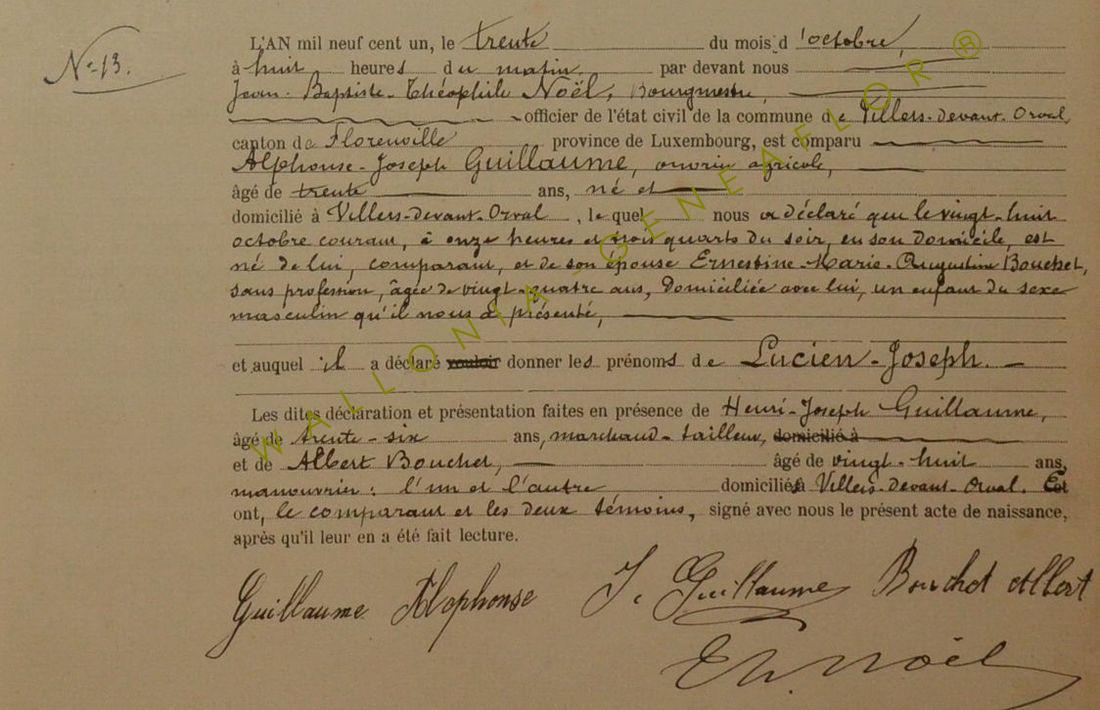 N° 13.
L'AN mil neuf cent un, le trente du mois d'octobre,
à huit heures du matin par devant nous
Jean-Baptiste-Théophile Noël, Bourgmestre,
officier de l'état civil de la commune de Villers-devant-Orval,
canton de Florenville province de Luxembourg, est comparu
Alphonse-Joseph Guillaume, ouvrier agricole,
âgé de trente ans, né et
domicilié à Villers-devant-Orval, le quel nous a déclaré que le vingt-huit
octobre courant, à onze heures et trois quarts du soir, en son domicile, est
né de lui, comparant, et de son épouse Ernestine-Marie-Augustine Bouchet,
sans profession, âgée de vingt-quatre ans, domiciliée avec lui, un enfant du sexe
masculin qu'il nous a présenté,
et auquel il a déclaré vouloir donner les prénoms de Lucien-Joseph.
Les dites déclaration et présentation faites en présence de Henri-Joseph Guillaume,
âgé de trente-six ans, marchand-tailleur, domicilié à
et de Albert Bouchet, âgé de vingt-huit ans,
manouvrier : l'un et l'autre domiciliés à Villers-devant-Orval. Et
ont, le comparant et les deux témoins, signé avec nous le présent acte de naissance,
après qu'il leur en a été fait lecture.
Guillaume Alophonse J. Guillaume Bouchet Albert
Th. Noël
WALLONIA-GENEAFLOR®